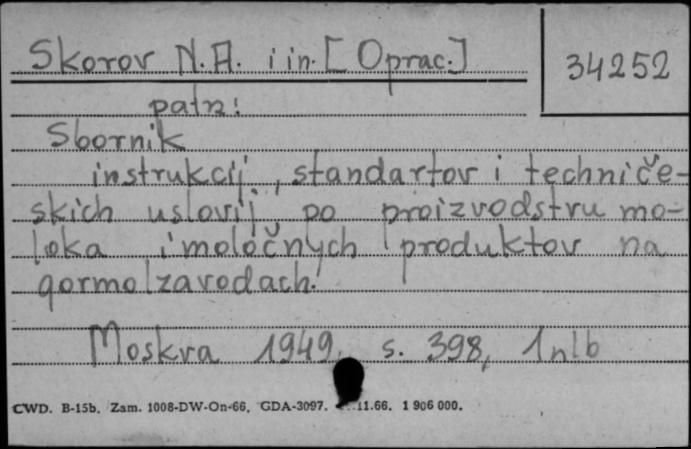 Skorov N.A. i in. [Oprac.]
34252
patrz:
Sbornik
instrukcij, standartov i techniče-
skich uslovij po proizvodstvu mo-
loka i moločnych produktov na
gormolzavodach.
Moskva 1949, s. 398, 1 nlb
CWD. B-15b. Zam. 1008-DW-On-66. GDA-3097. 11.66. 1 906 000.